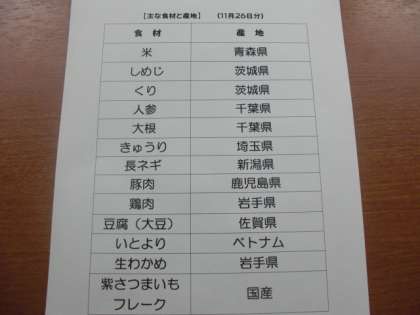 ［主な食材と産地］　（11月26日分）
食　材　産　地
米　青森県
しめじ　茨城県
くり　茨城県
人参　千葉県
大根　千葉県
きゅうり　埼玉県
長ネギ　新潟県
豚肉　鹿児島県
鶏肉　岩手県
豆腐（大豆）　佐賀県
いとより　ベトナム
生わかめ　岩手県
紫さつまいも
フレーク　国産